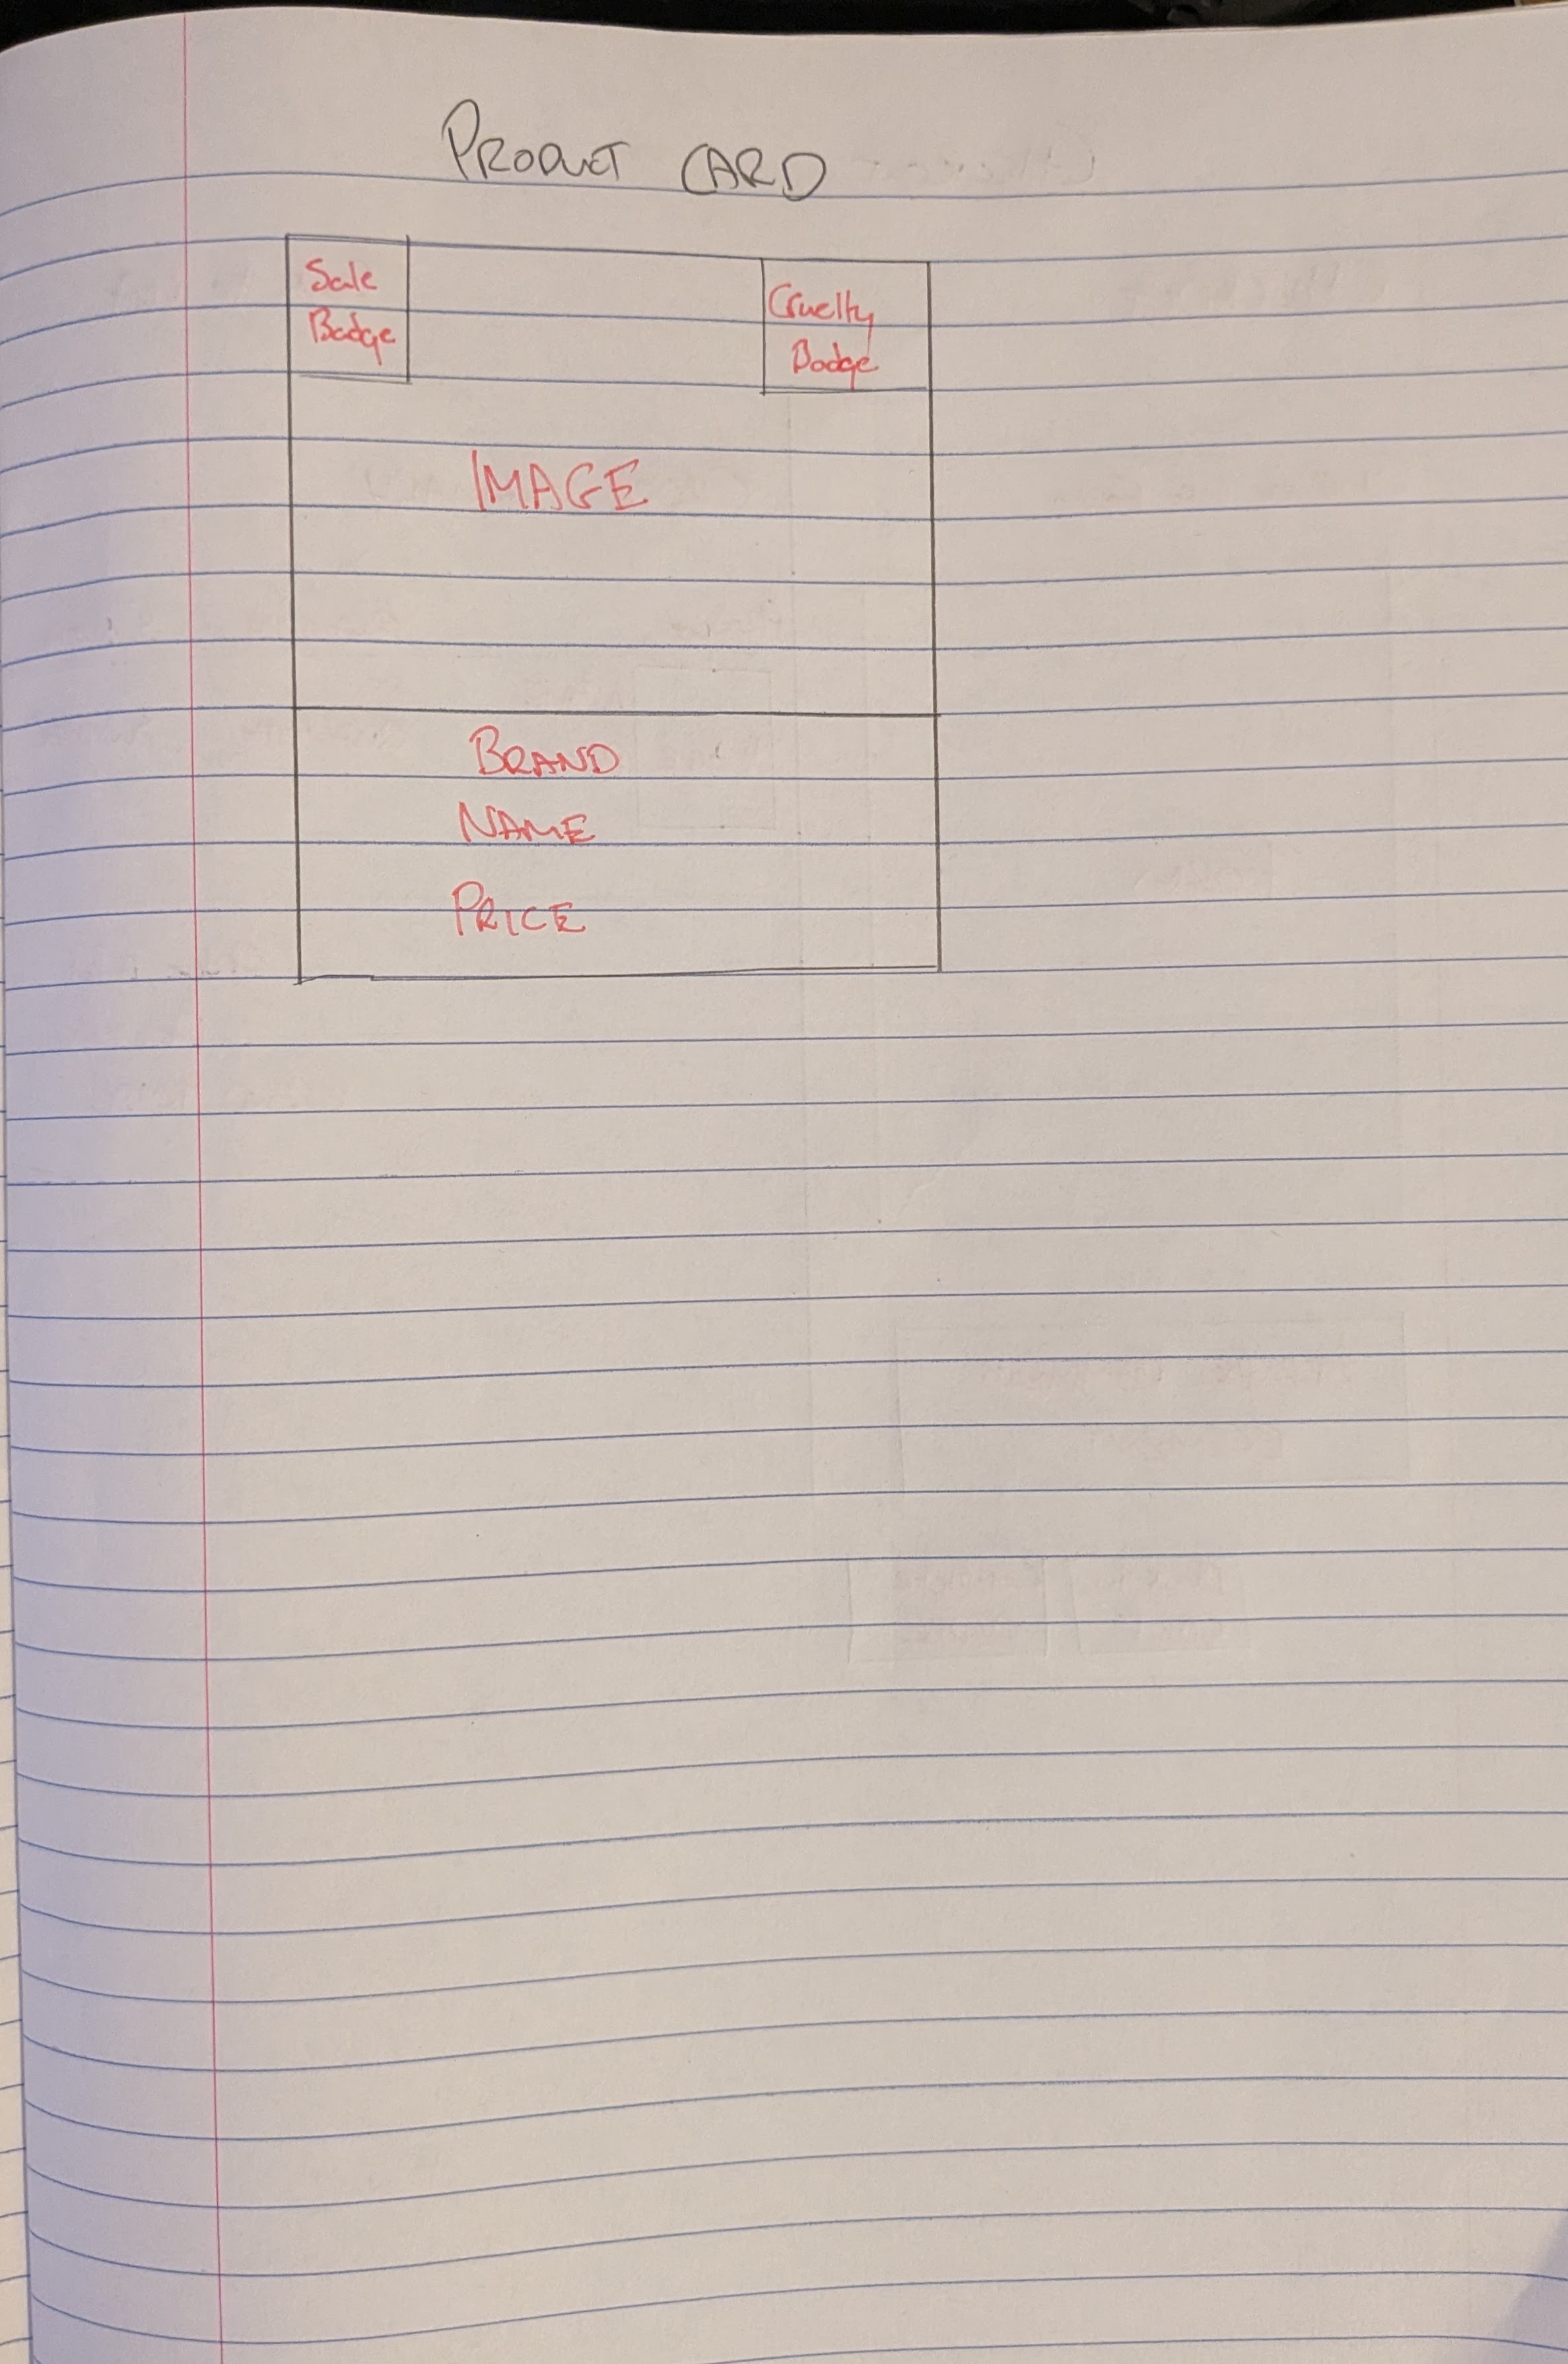 PRODUCT CARD
Sale
Badge
Cruelty
Badge
IMAGE
BRAND
NAME
PRICE